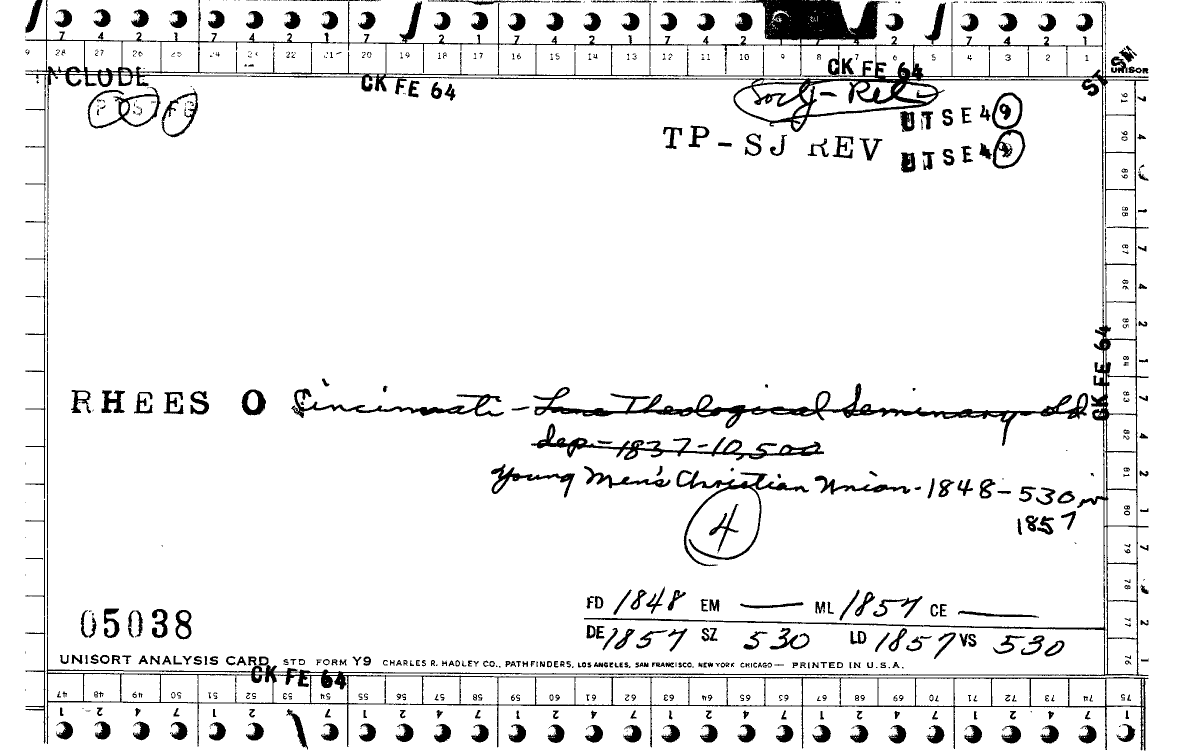 7 4 2 1 7 4 2 1 7 4 2 1 7 4 2 1 7 4 2 1 7 4 2 1
9 28 27 26 25 24 23 22 21 20 19 18 17 16 15 14 13 12 11 10 9 8 7 6 5 4 3 2 1 UNISOR
NCLUDE CK FE 64 CK FE 64 ST SM
P T O S T F B Socy-Rel
UTSE 4 9
TP-SJ REV UTSE 4
RHEES O Cincinnati - Lane Theological Seminary - old
dep - 1837 - 10,500
Young Men's Christian Union - 1848 - 530 in
1857
4
CK FE 64
FD 1848 EM — ML 1857 CE —
05038
DE 1857 SZ 530 LD 1857 VS 530
UNISORT ANALYSIS CARD STD FORM Y9 CHARLES R. HADLEY CO., PATHFINDERS, LOS ANGELES, SAN FRANCISCO, NEW YORK CHICAGO — PRINTED IN U.S.A.
CK FE 64
91 90 89 88 87 86 85 84 83 82 81 80 79 78 77 76
47 48 49 50 51 52 53 54 55 56 57 58 59 60 61 62 63 64 65 66 67 68 69 70 71 72 73 74 75